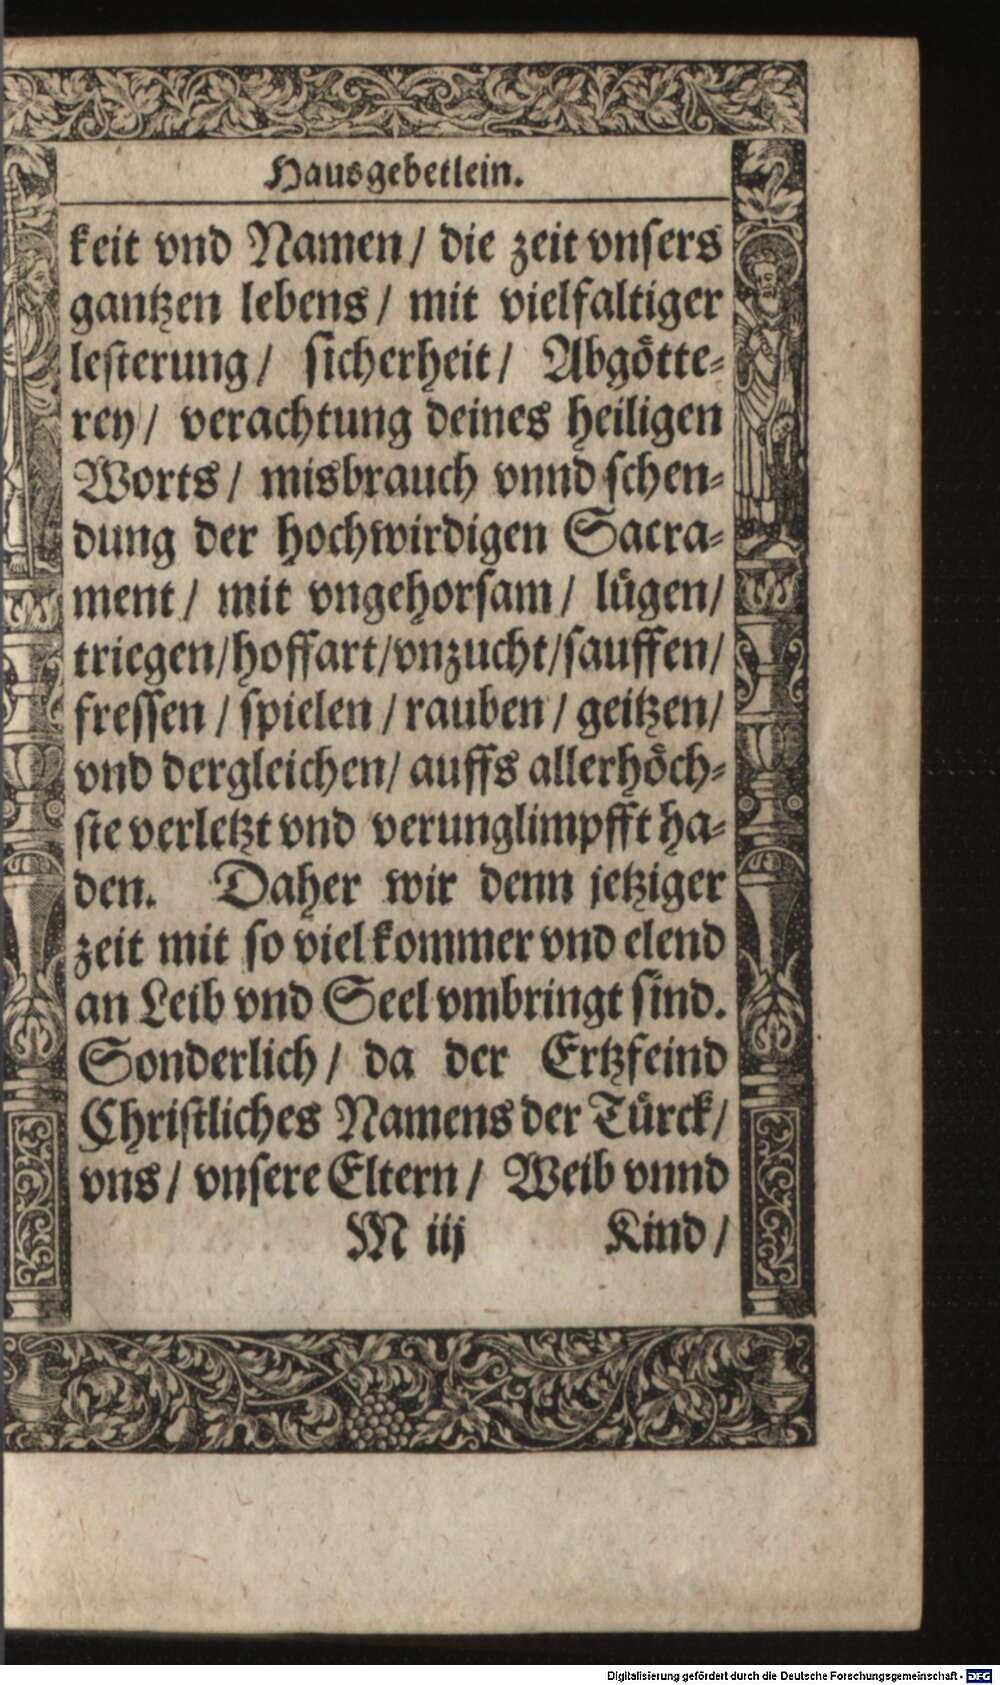 Hausgebetlein.
keit vnd Namen / die zeit vnsers
gantzen lebens / mit vielfaltiger
lesterung / sicherheit / Abgötte-
rey / verachtung deines heiligen
Worts / misbrauch vnnd schen-
dung der hochwirdigen Sacra-
ment / mit vngehorsam / lügen /
triegen / hoffart / vnzucht / sauffen /
fressen / spielen / rauben / geitzen /
vnd dergleichen / auffs allerhöch-
ste verletzt vnd verunglimpfft ha-
den. Daher wir denn jetziger
zeit mit so viel kommer vnd elend
an Leib vnd Seel vmbringt sind.
Sonderlich / da der Ertzfeind
Christliches Namens der Türck /
vns / vnsere Eltern / Weib vnnd
M iij Kind /
Digitalisierung gefördert durch die Deutsche Forschungsgemeinschaft - DFG